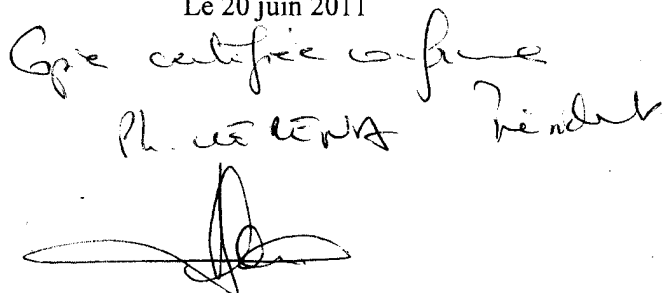 Le 20 juin 2011
Copie certifiée conforme
Ph. Président